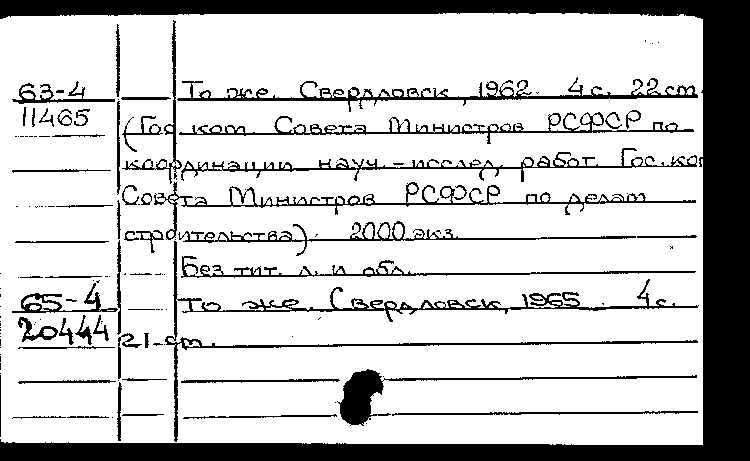 63-4 То же. Свердловск, 1962. 4 с. 22 cm.
11465 (Гос ком. Совета Министров РСФСР по
координации науч.-исслед. работ. Гос. ком
Совета Министров РСФСР по делам
строительства). 2000 экз.
Без тит. л. и обл.
65-4 То же. Свердловск, 1965. 4 с.
20444 21 cm.